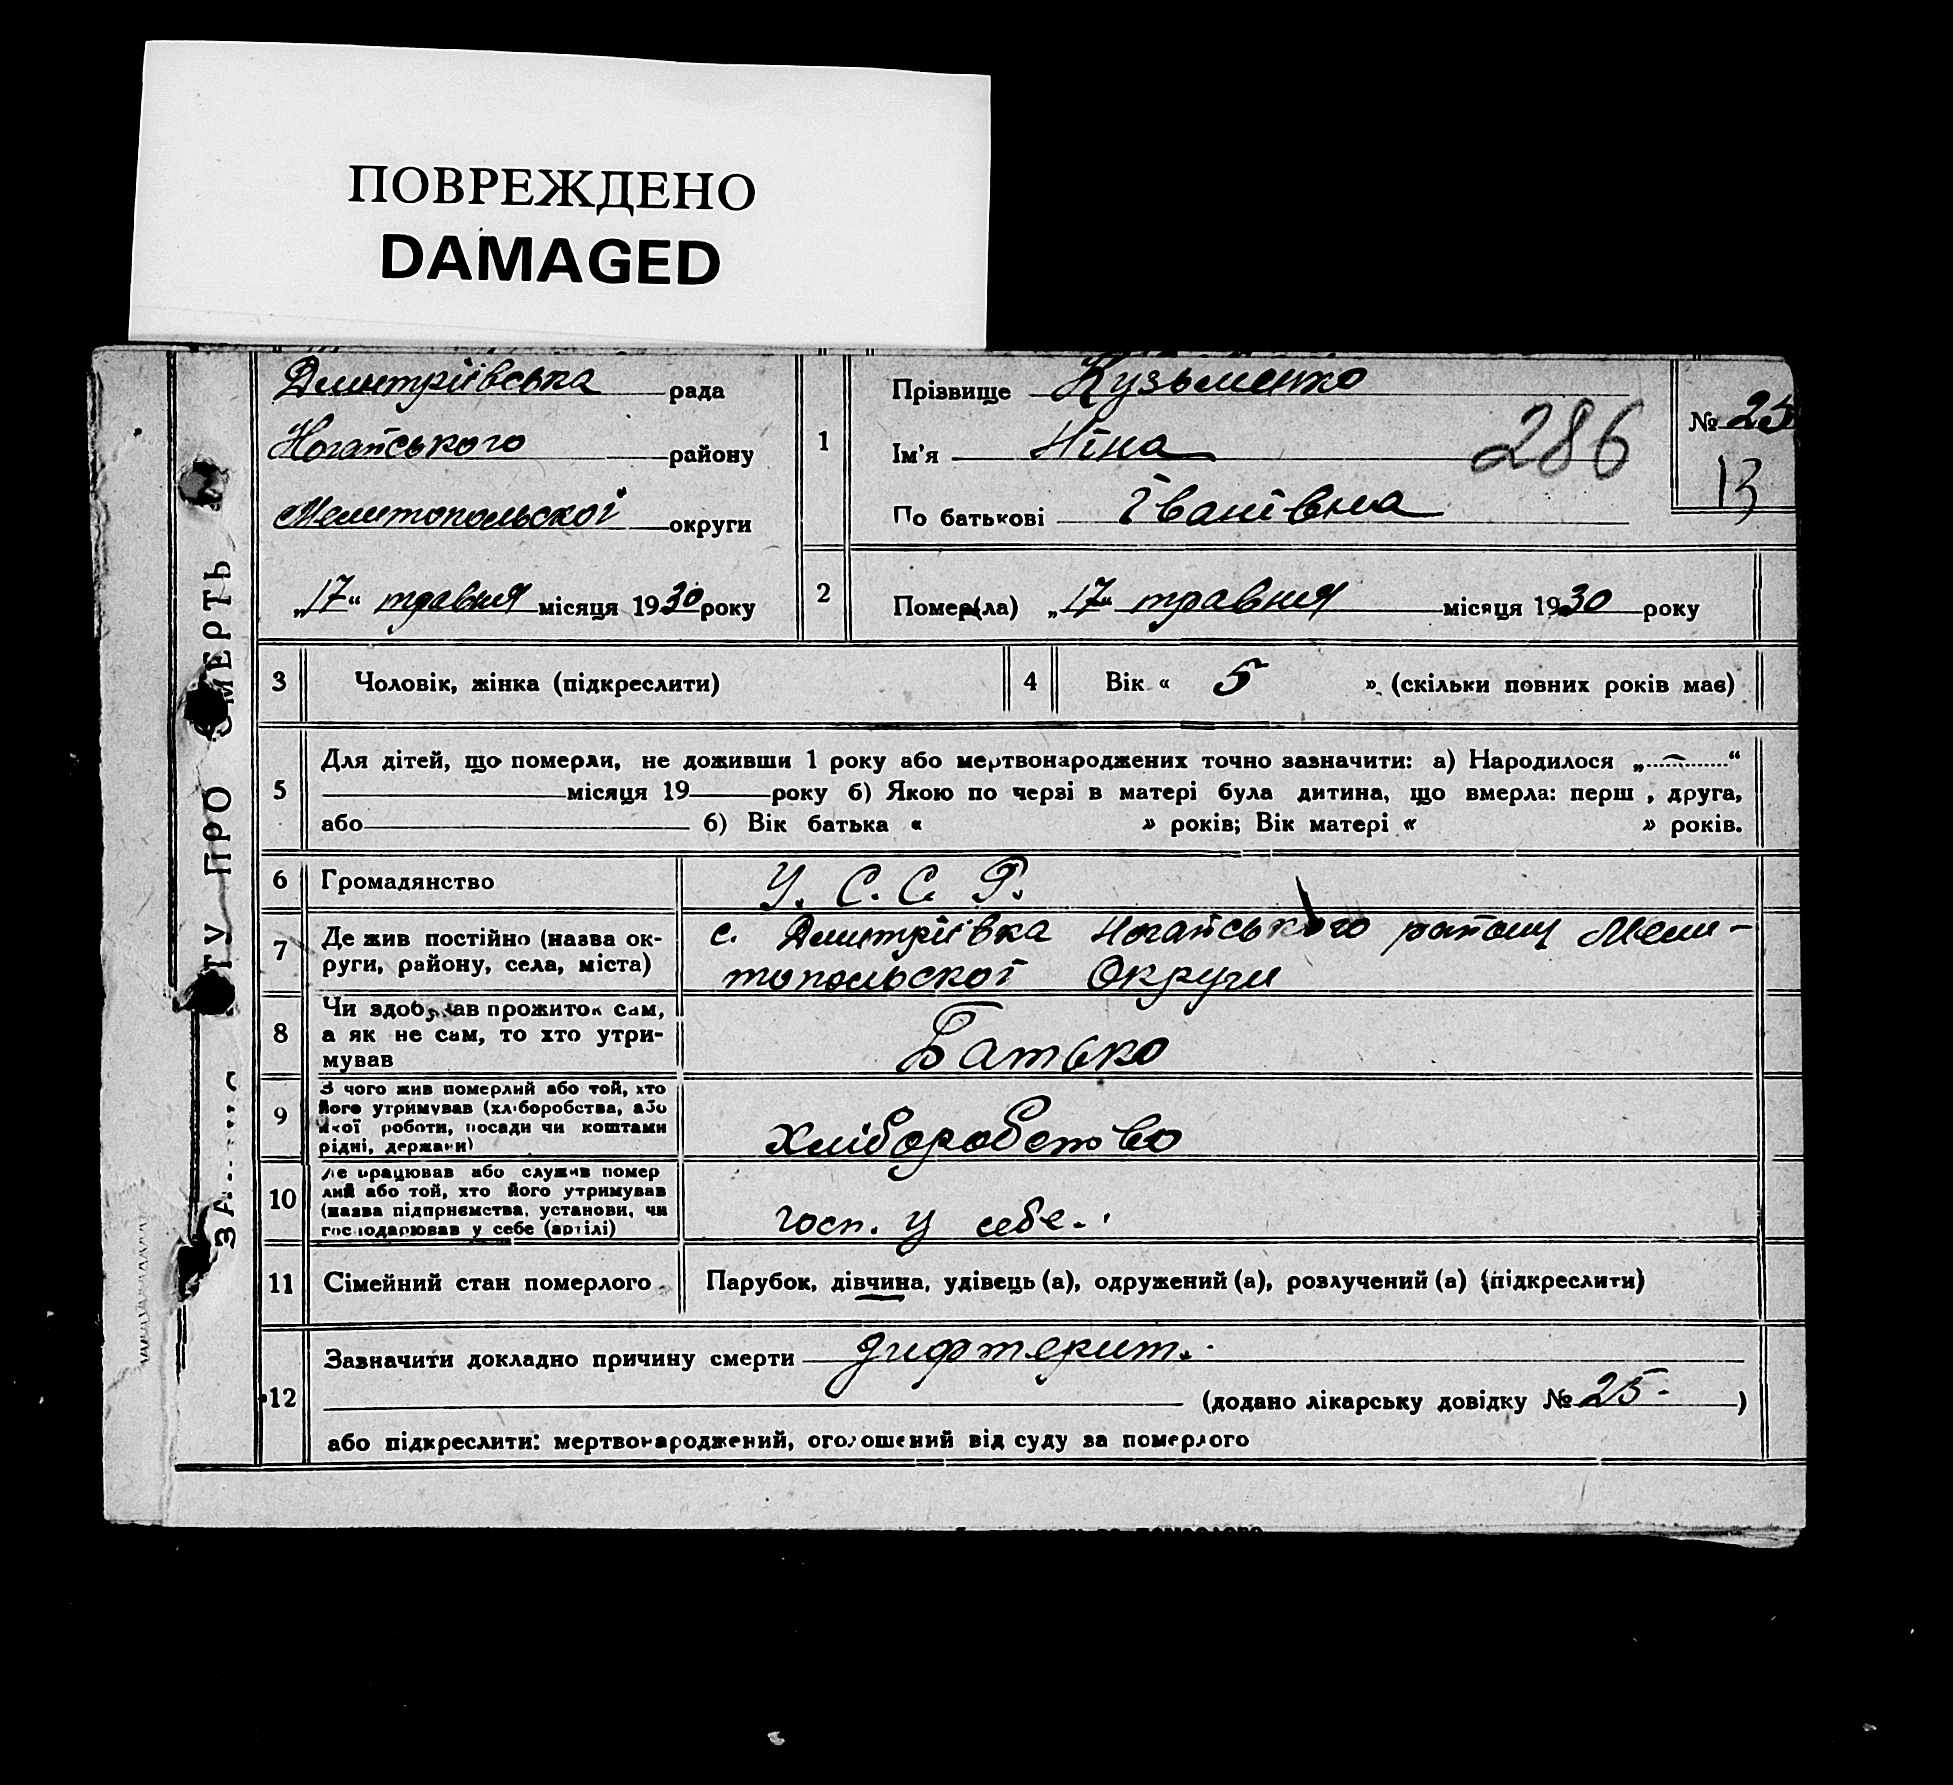 ПОВРЕЖДЕНО
DAMAGED
Дмитріївська рада
Ногайського району
Мелітопольскої округи
„17“ травня місяця 1930 року
1
Прізвище Кузьменко
Ім'я Ніна
По батькові Іванівна
286
№ 25
13
2
Помер(ла) „17“ травня місяця 1930 року
3 Чоловік, жінка (підкреслити)
4 Вік « 5 » (скільки повних років мав)
5
Для дітей, що померли, не доживши 1 року або мертвонароджених точно зазначити: а) Народилося „ “
місяця 19 року б) Якою по черзі в матері була дитина, що вмерла: перш , друга,
або б) Вік батька « » років; Вік матері « » років.
6 Громадянство У. С. С. Р.
7
Де жив постійно (назва ок-
руги, району, села, міста)
с. Дмитріївка Ногайського району Мели-
топольскої Округи
8
Чи здобував прожиток сам,
а як не сам, то хто утри-
мував
Батько
9
З чого жив померлий або той, хто
його утримував (хліборобства, або
якої роботи, посади чи коштами
рідні, держави)
Хліборобство
10
Де працював або служив помер
лий або той, хто його утримував
(назва підприємства, установи, чи
господарював у себе (артілі)
госп. у себе.
11 Сімейний стан померлого Парубок, дівчина, удівець (а), одружений (а), розлучений (а) (підкреслити)
12
Зазначити докладно причину смерти дифтерит.
(додано лікарську довідку № 25 - )
або підкреслити: мертвонароджений, оголошений від суду за померлого
ПРО СМЕРТЬ